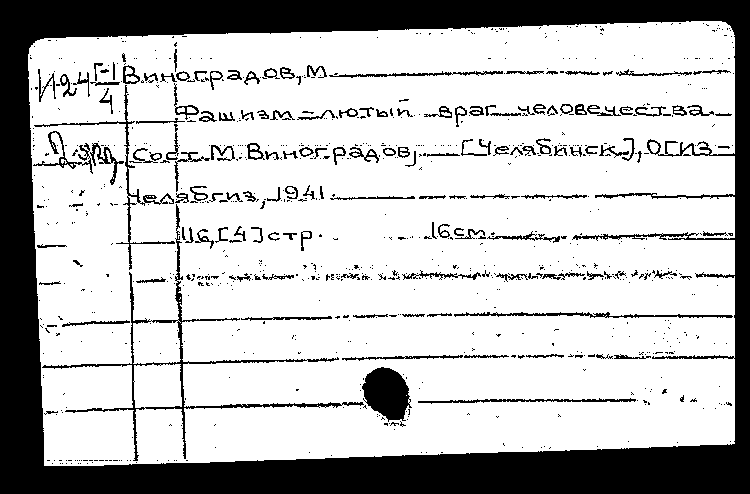 И24 Г-1/4 Виноградов, М.
Фашизм - лютый враг человечества.
[Сост. М. Виноградов, [Челябинск], ОГИЗ-
Челябгиз, 1941.
116, [4] стр. 16см.